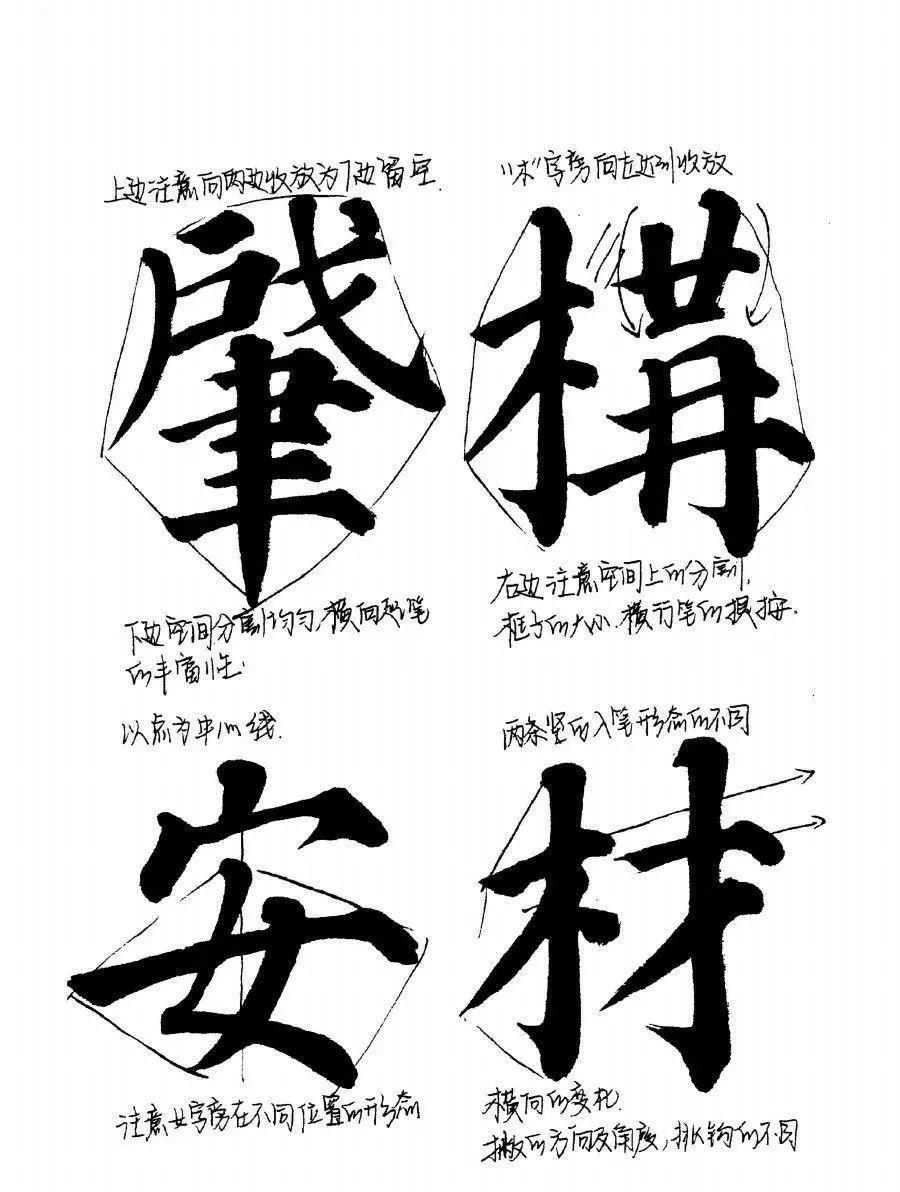 上边注意向两边收放为下边留空.
肇
下边空间分割均匀,横向起笔
的丰富性.
"木"字旁向左达到收放
構
右边注意空间上的分割,
框子的大小.横行笔的提按.
以点为中心线.
安
注意女字旁在不同位置的形态
两条竖的入笔形态的不同
材
横向的变化.
撇的方向及角度,排钩的不同